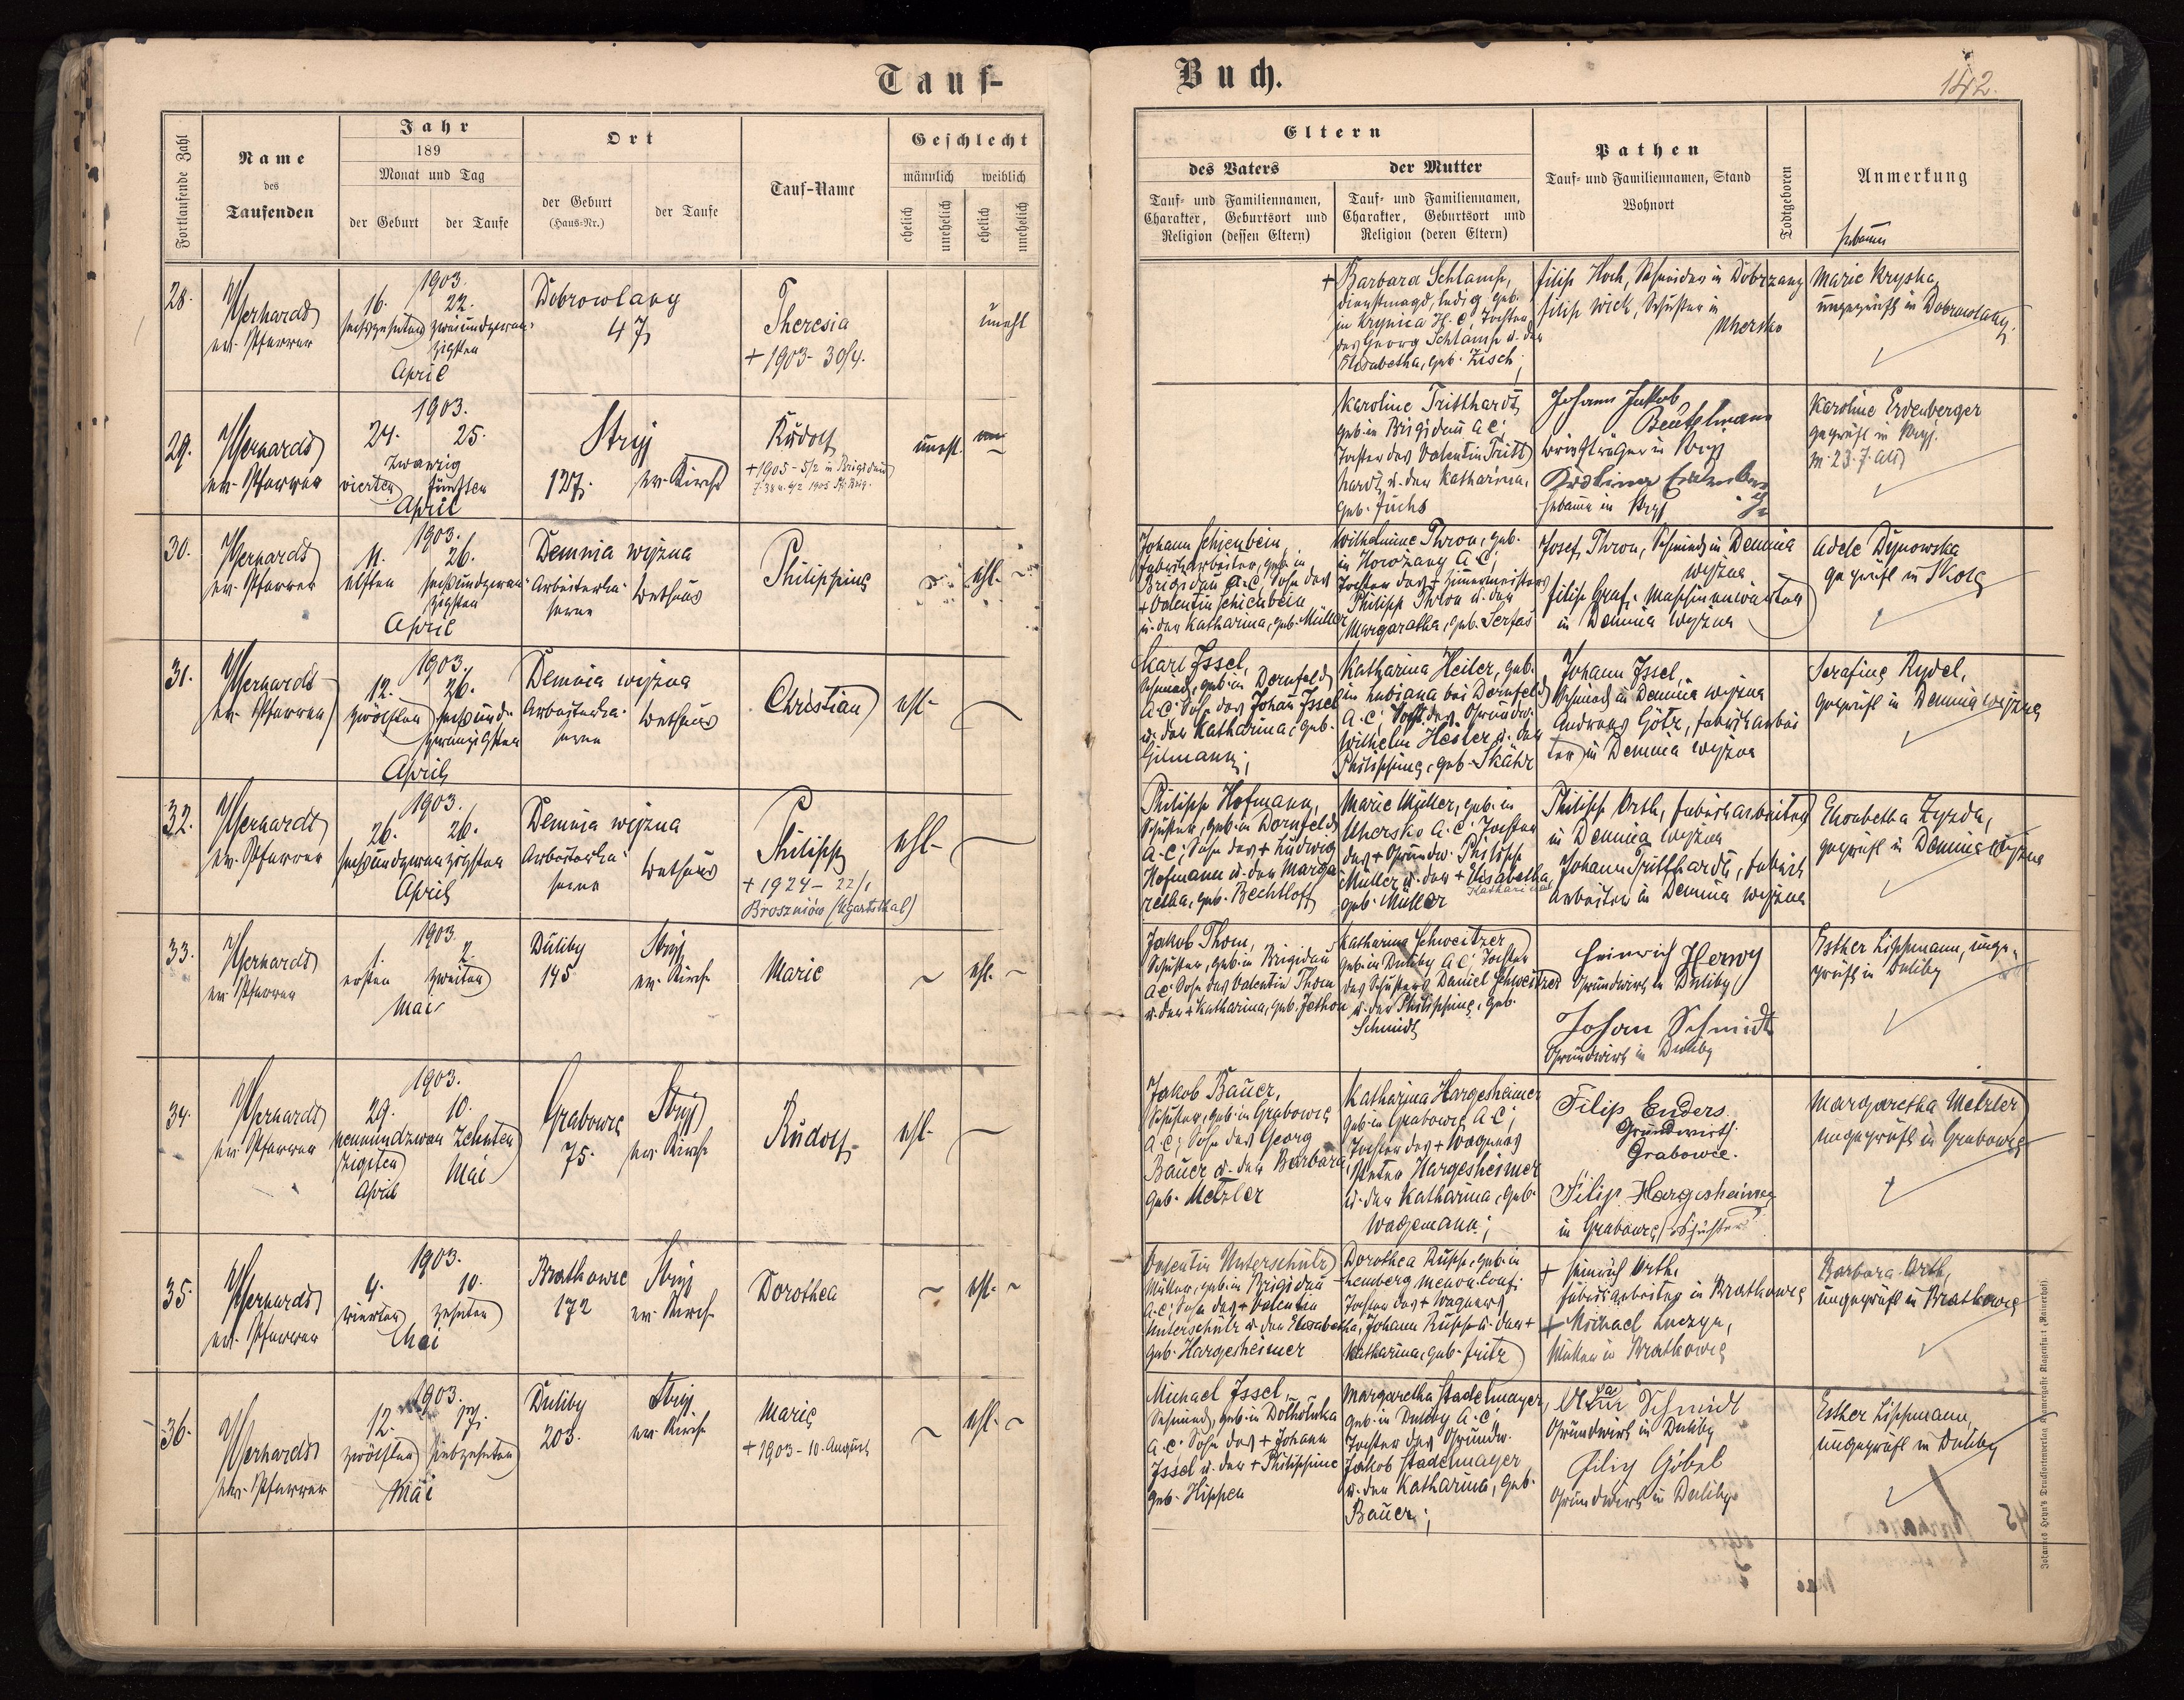 Tauf-
Fortlaufende Zahl
Name
des
Taufenden
Jahr
189
Monat und Tag
der Geburt
der Taufe
Ort
der Geburt
(Haus-Nr.)
der Taufe
Tauf-Name
Geschlecht
männlich
weiblich
ehelich
unehelich
ehelich
unehelich
28.
ev. Pfarrer
1903.
16.
22.
sechszehnten
zweiundzwan-
zigsten
April
Dobrowlany
47
Theresia
+ 1903 - 30/4.
unehl
29.
ev. Pfarrer
1903.
24.
25.
zwanzig
vierten
fünften
April
Stryj
127.
ev. Kirche
Rudolf
+ 1905 - 5/2 in Brigidau
unehl.
30.
ev. Pfarrer
1903.
11.
26.
elften
sechsundzwan-
zigsten
April
Demnia wyżna
Arbeiterka-
serne
Bethaus
Philippine
ehl.
31.
ev. Pfarrer
1903.
12.
26.
zwölften
sechsund-
zwanzigsten
April
Demnia wyżna
Arbeiterka-
serne
Bethaus
Christian
ehl.
32.
ev. Pfarrer
1903.
26.
26.
sechsundzwanzigsten
April
Demnia wyżna
Arbeiterka-
serne
Bethaus
Philipp
+ 1924 - 22/1
Broszniów (Ugartsthal)
ehl.
33.
ev. Pfarrer
1903.
1.
2.
ersten
zweiten
Mai
Duliby
145
Stryj
ev. Kirche
Marie
ehl.
34.
ev. Pfarrer
1903.
29.
10.
neunundzwan
zehnten
zigsten
April
Mai
Grabowce
75.
Stryj
ev. Kirche
Rudolf
ehl.
35.
ev. Pfarrer
1903.
4.
10.
vierten
zehnten
Mai
Bratkowce
172
Stryj
ev. Kirche
Dorothea
ehl.
36.
ev. Pfarrer
1903.
12.
17.
zwölften
siebzehnten
Mai
Duliby
203.
Stryj
ev. Kirche
Marie
+ 1903 - 10. August
ehl.
Buch.
142.
Eltern
des Vaters
der Mutter
Tauf- und Familiennamen,
Charakter, Geburtsort und
Religion (dessen Eltern)
Tauf- und Familiennamen,
Charakter, Geburtsort und
Religion (deren Eltern)
Pathen
Tauf- und Familiennamen, Stand
Wohnort
Todtgeboren
Anmerkung
Hebamme
+ Barbara Schlamp,
Dienstmagd, ledig, geb.
in Krynica H.C., Tochter
des Georg Schlamp u. der
Elisabetha, geb. Zisch;
Filip Koch, Schneider in Dobrzany
Filip Wick, Schuster in
Uhersko
Marie Kryska,
ungeprüft in Dobrowlany.
Karoline Tritthardt,
geb. in Brigidau A.C.,
Tochter des Valentin Tritt
hardt u. der Katharina,
geb. Fuchs
Johann Jakob
Beutelmann
in Stryj
Hebamme in Stryj
Karoline Erdenberger
geprüft in Stryj.
Johann Schienbein,
Fabriksarbeiter, geb. in
Brigidau A.C., Sohn des
+ Valentin Schienbein
u. der Katharina, geb. Müller
Wilhelmine Thron, geb.
in Horożany A.C.,
Tochter des + Zimmermeisters
Philipp Thron u. der
Margaretha, geb. Serfas
Josef Thron, Schmied in Demnia
wyżna
Filip Graf, Maschinenwärter
in Demnia wyżna
Adele Dynowska
geprüft in Skole
Karl Issel,
Schmied, geb. in Dornfeld
A.C. Sohn des Johann Issel
u. der Katharina, geb.
Katharina Heiler, geb.
in Lubiana bei Dornfeld
A.C., Tocht. des Grundw.
Wilhelm Hesler u. der
Philippine, geb.
Johann Issel,
Schmied in Demnia wyżna
Andreas Götz, Fabriksarbei
ter in Demnia wyżna
Serafine Rydel,
geprüft in Demnia wyżna
Philipp Hofmann,
Schuster, geb. in Dornfeld
A.C., Sohn des + Ludwig
Hofmann u. der Marga-
retha, geb. Bechtloff
Marie Müller, geb. in
Uhersko A.C. Tochter
des + Grundw. Philipp
Müller u. der + Elisabetha
Katharina
geb. Müller
Philipp Orth, Fabriksarbeiter
in Demnia wyżna
Johann Tritthardt, Fabriks
arbeiter in Demnia wyżna
Elisabetha Zyzda,
geprüft in Demnia wyżna
Jakob Thom,
Schuster, geb. in Brigidau
A.C. Sohn des Valentin Thom
u. der + Katharina, geb. Jethon
Katharina Schweitzer
geb. in Duliby A.C., Tochter
des Schusters Daniel Schweitzer
u. der Philippine, geb.
Schmidt
Heinrich Herwy
Grundwirt in Duliby
Johann Schmidt
Grundwirt in Duliby
Esther Lippmann, unge-
prüft in Duliby
Jakob Bauer,
Schuster, geb. in Grabowce
A.C., Sohn des Georg
Bauer u. der Barbara,
geb. Metzler
Katharina Hargesheimer
geb. in Grabowce A.C.,
Tochter des + Wagners
Peter Hargesheimer
u. der Katharina, geb.
Wagemann;
Filip Enders.
Grundwirth.
Grabowce.
Filip Hargesheimer
in Grabowce, Schuster
Margaretha Metzler
ungeprüft in Grabowce
Valentin Unterschütz
Müller, geb. in Brigidau
A.C., Sohn des + Valentin
Unterschütz u. der Elisabetha,
geb. Hargesheimer
Dorothea Rupp, geb. in
Lemberg menon. Conf.
Tochter des + Wagners
Johann Rupp u. der +
Katharina, geb. Fritz
+ Heinrich Orth,
Fabriksarbeiter in Bratkowce
+ Michael
Müller in Bratkowce
Barbara Orth,
ungeprüft in Bratkowce
Michael Issel,
Schmied, geb. in Dołhołuka
A.C. Sohn des + Johann
Issel u. der + Philippine
geb. Hippen
Margaretha Stadelmayer,
geb. in Duliby A.C.,
Tochter des Grundw.
Jakob Stadelmayer
u. der Katharina, geb.
Bauer;
Schmidt
Grundwirt in Duliby
Filip Göbel
Grundwirt in Duliby
Esther Lippmann,
ungeprüft in Duliby